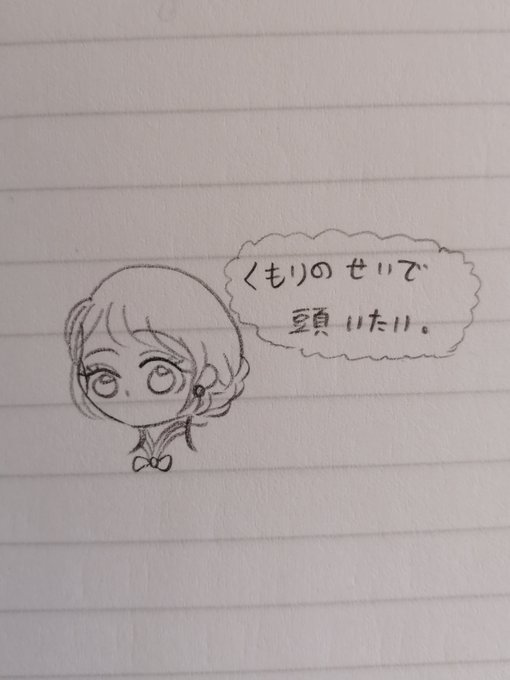 くもりの せいで
頭 いたい。